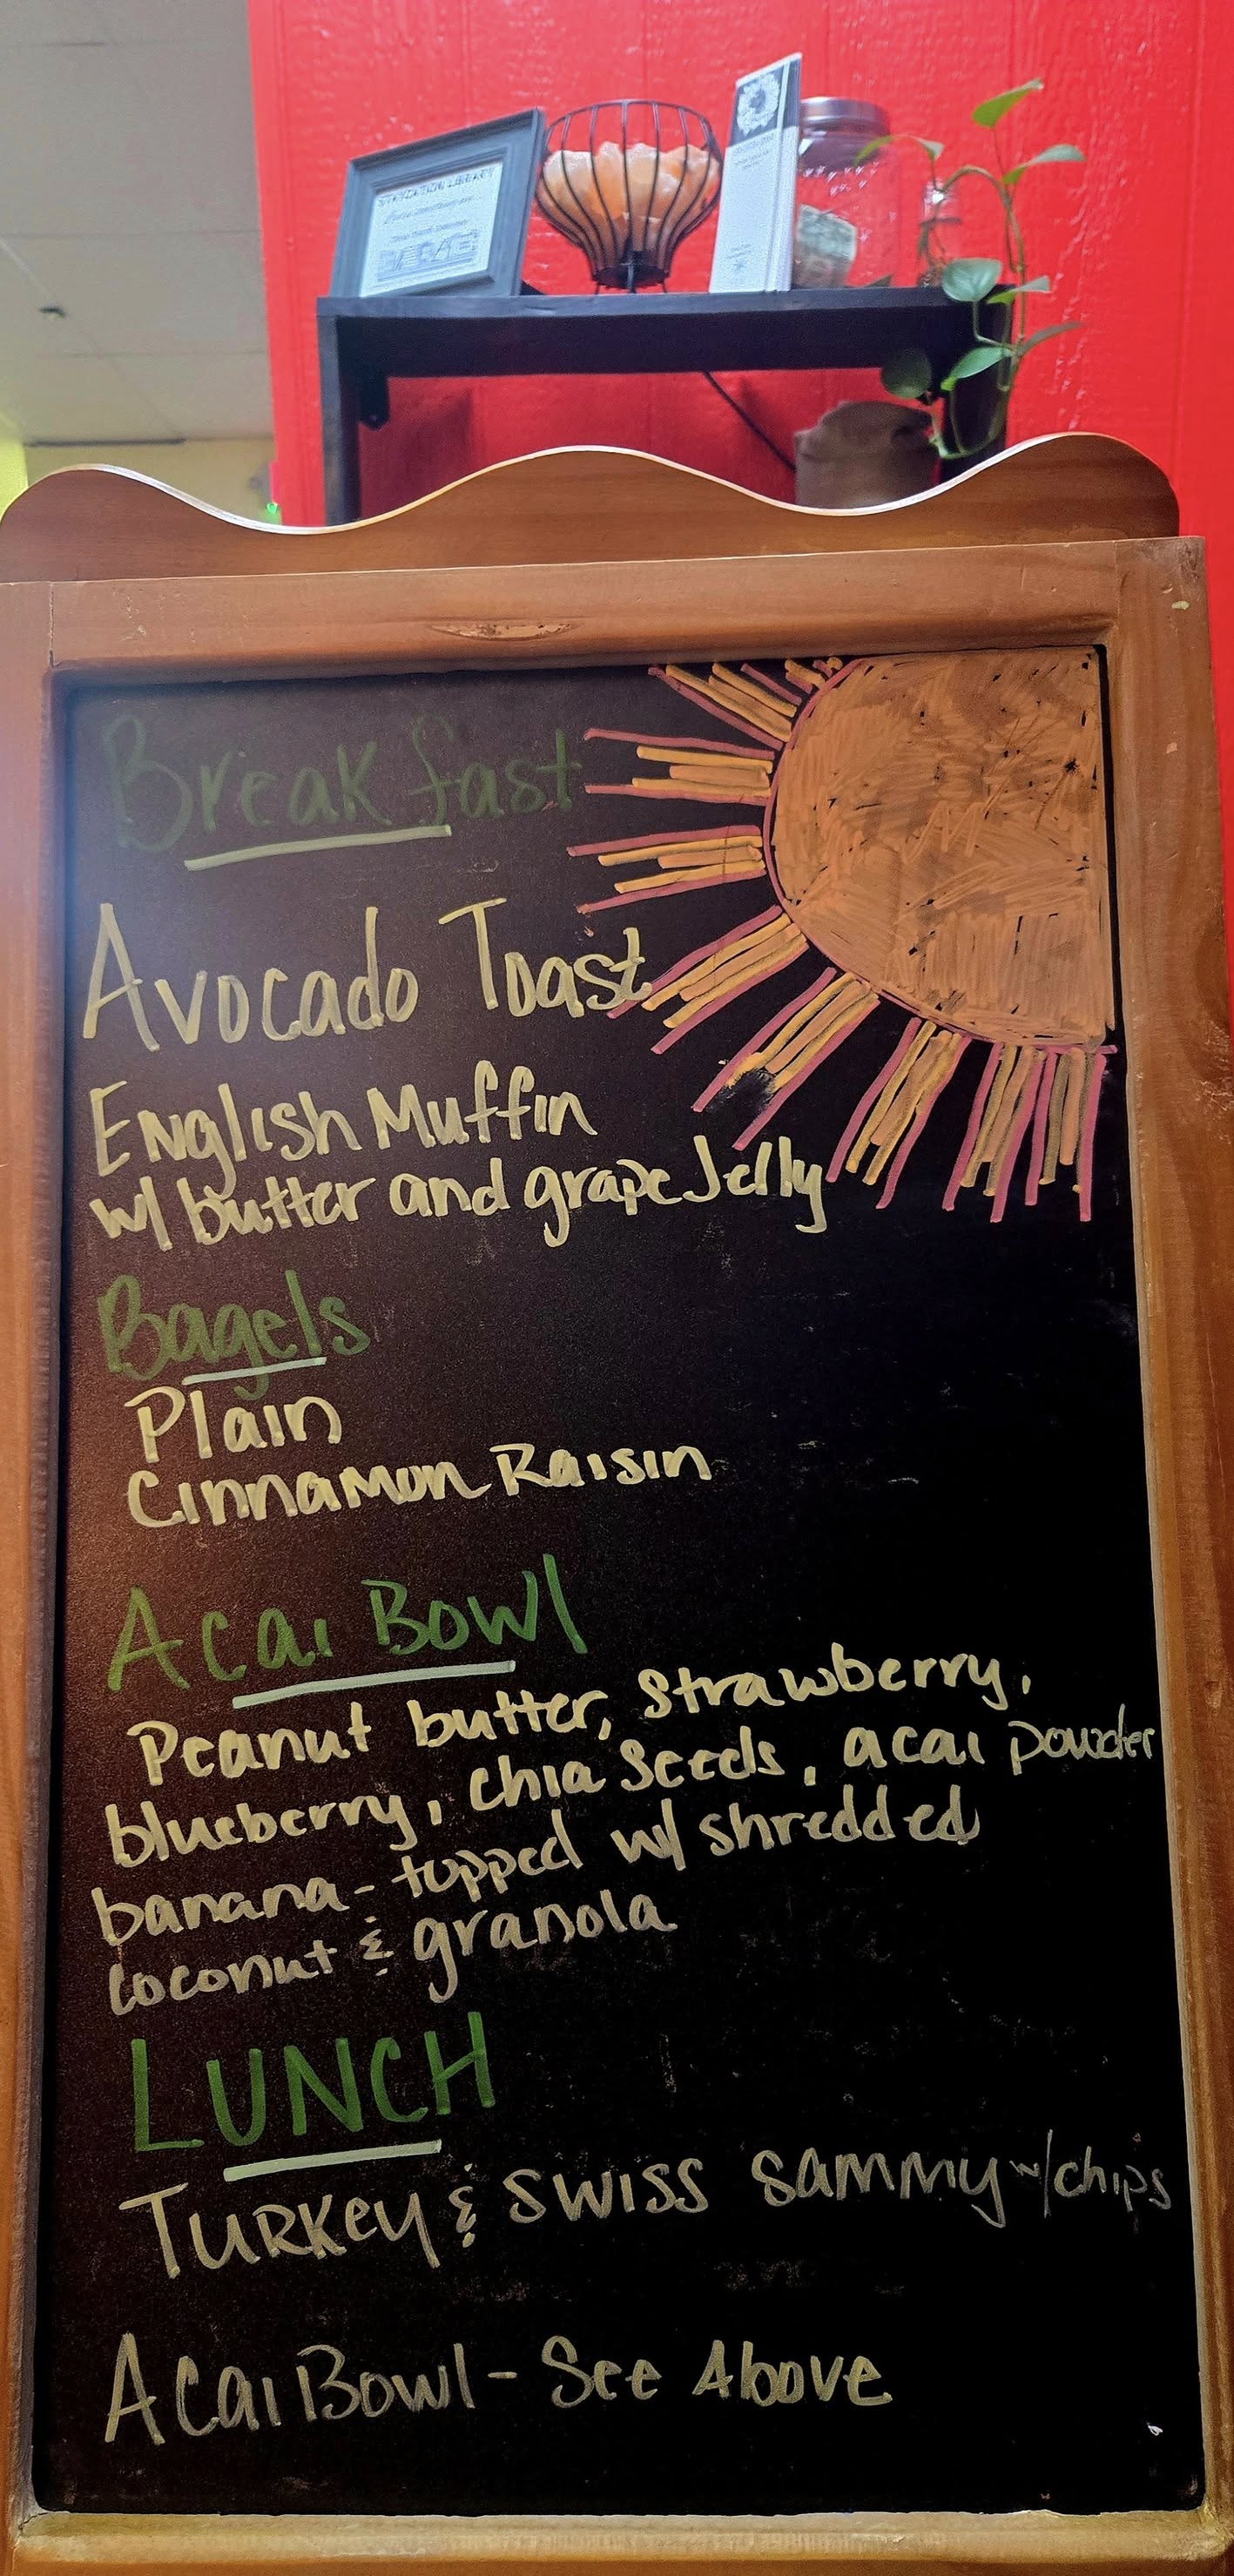 Breakfast
Avocado Toast
English Muffin
w/ butter and grape Jelly
Bagels
Plain
Cinnamon Raisin
Acai Bowl
Peanut butter, Strawberry,
blueberry, chia Seeds, acai powder
banana - topped w/ shredded
coconut & granola
LUNCH
Turkey & swiss sammy w/chips
Acai Bowl - See Above